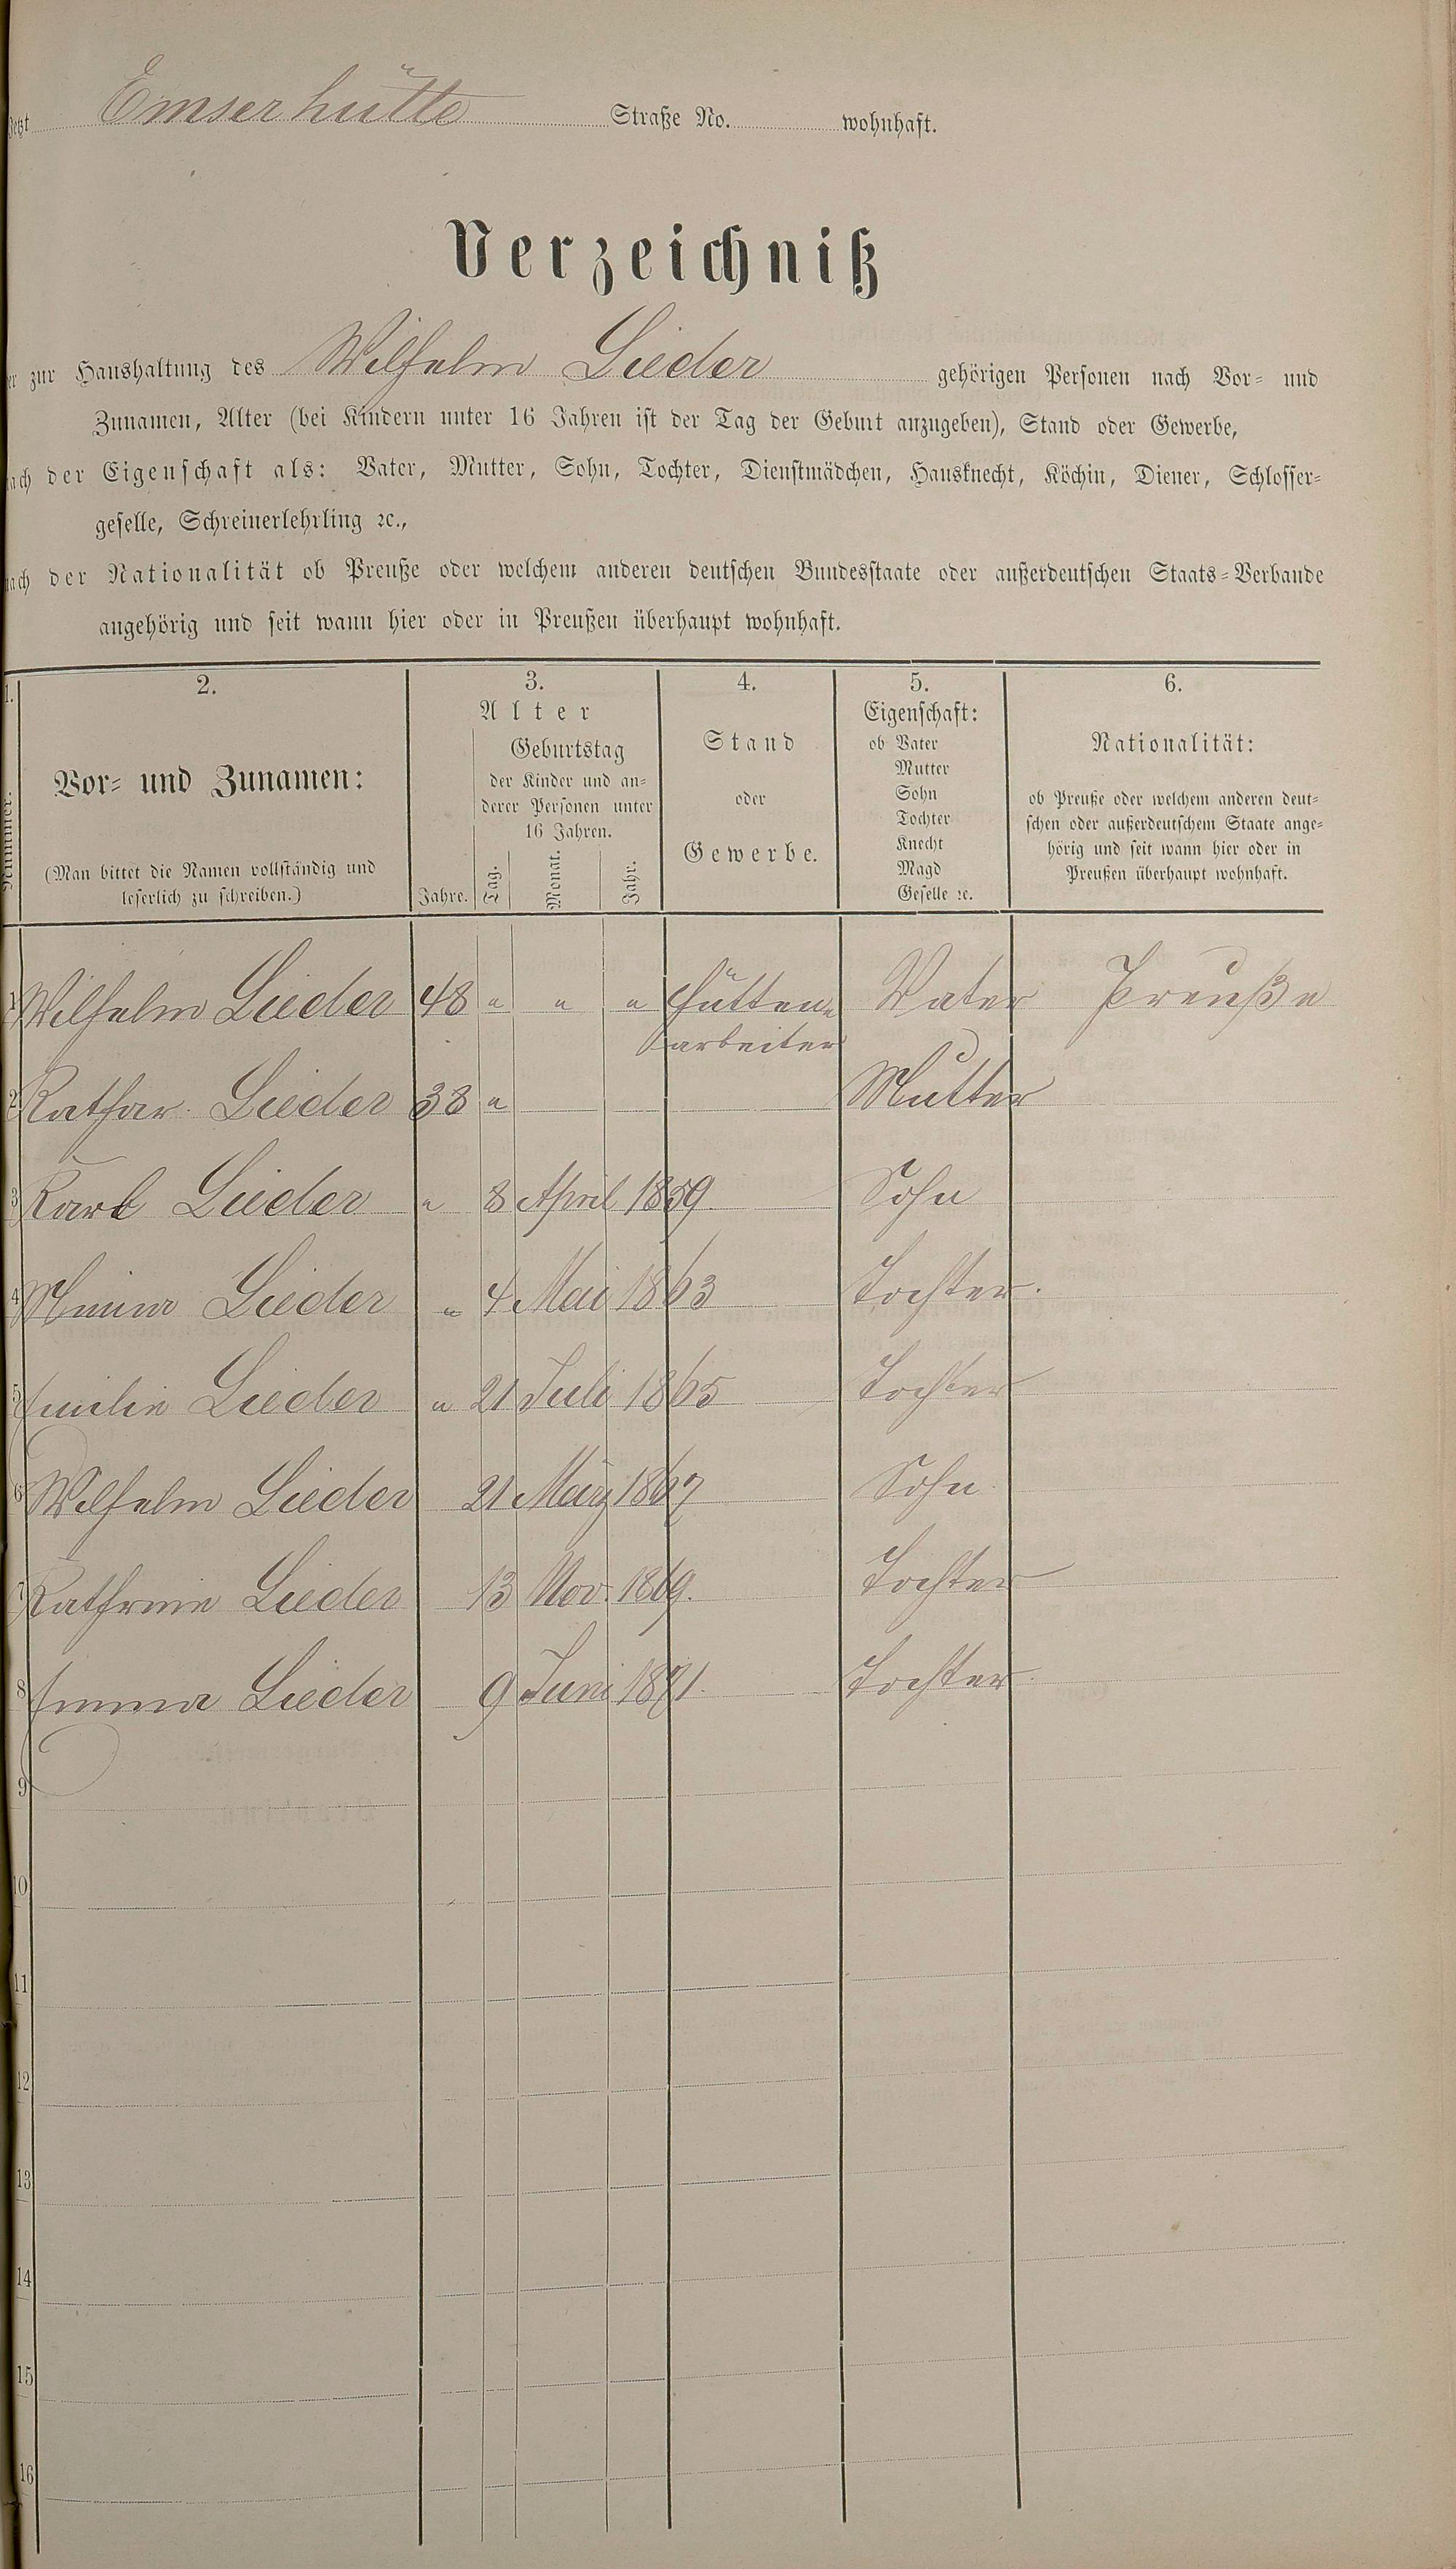 jetzt Emserhütte Straße No. wohnhaft.
Verzeichniß
zur Haushaltung des Wilhelm Lieder gehörigen Personen nach Vor- und
Zunamen, Alter (bei Kindern unter 16 Jahren ist der Tag der Geburt anzugeben), Stand oder Gewerbe,
nach der Eigenschaft als: Vater, Mutter, Sohn, Tochter, Dienstmädchen, Hausknecht, Köchin, Diener, Schlosser-
geselle, Schreinerlehrling ꝛc.,
nach der Nationalität ob Preuße oder welchem anderen deutschen Bundesstaate oder außerdeutschen Staats-Verbande
angehörig und seit wann hier oder in Preußen überhaupt wohnhaft.
1. 2. 3. 4. 5. 6.
Nummer.
Vor- und Zunamen:
(Man bittet die Namen vollständig und
leserlich zu schreiben.)
Alter
Jahre.
Geburtstag
der Kinder und an-
derer Personen unter
16 Jahren.
Tag. Monat. Jahr.
Stand
oder
Gewerbe.
Eigenschaft:
ob Vater
Mutter
Sohn
Tochter
Knecht
Magd
Geselle ꝛc.
Nationalität:
ob Preuße oder welchem anderen deut-
schen oder außerdeutschem Staate ange-
hörig und seit wann hier oder in
Preußen überhaupt wohnhaft.
1 Wilhelm Lieder 48 " " " Hütten- Vater Preuße
arbeiter
2 Kathar. Lieder 38 " Mutter
3 Karl Lieder " 8 April 1859. Sohn
4 Minna Lieder " 4 Mai 1863 Tochter.
5 Emilie Lieder " 21 Juli 1865 Tochter
6 Wilhelm Lieder 21 März 1867 Sohn
7 Kathrine Lieder 13 Nov. 1869. Tochter
8 Emma Lieder 9 Juni 1871. Tochter
9
10
11
12
13
14
15
16